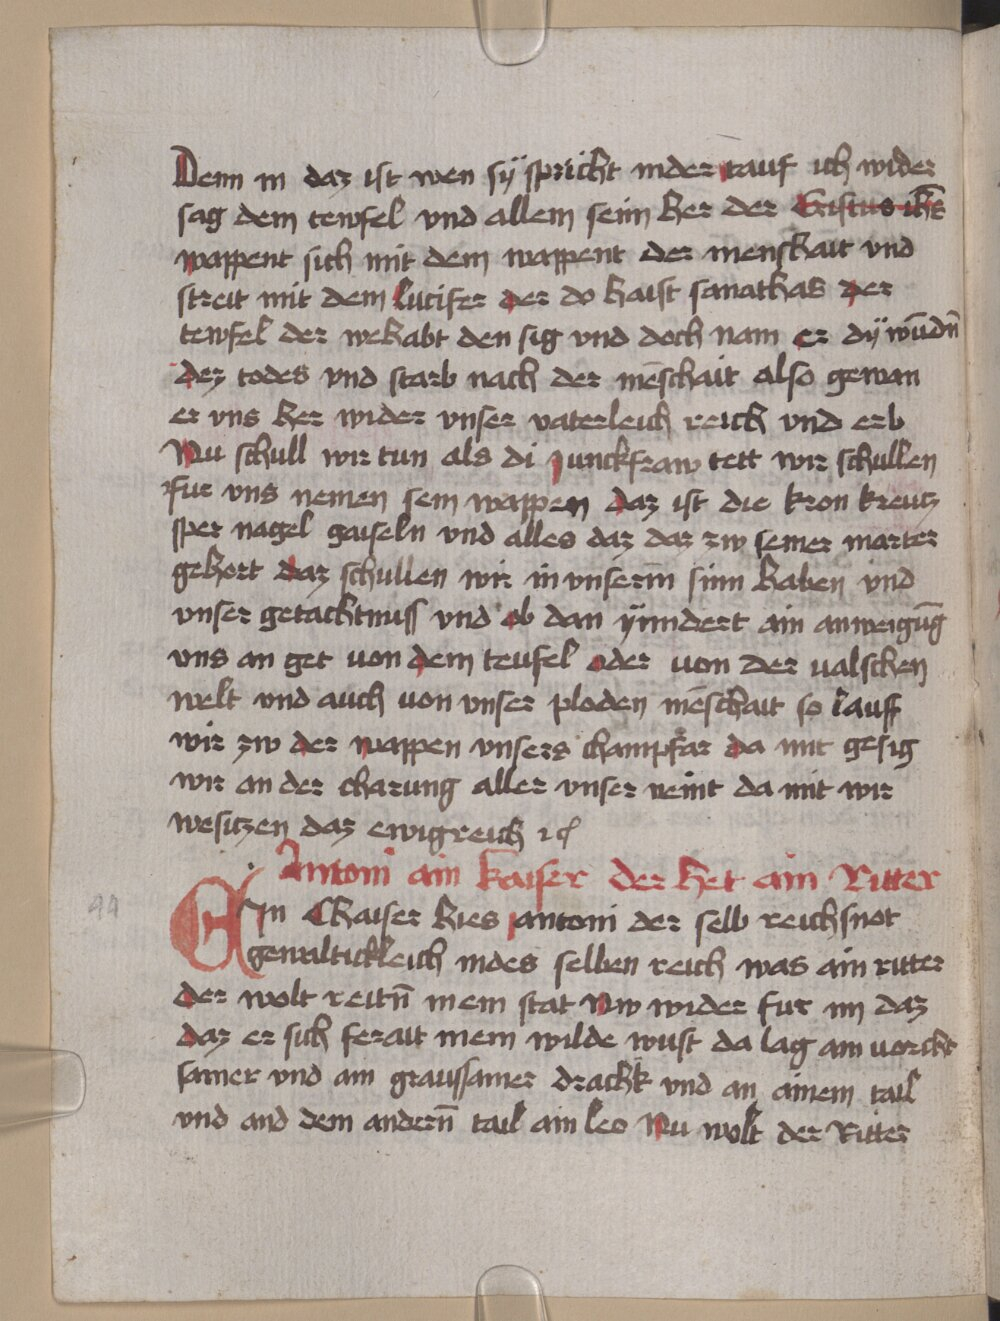 Denn in daz ist wen sÿ spricht inder tauf ich wider
sag dem tewfel vnd allem seim her der Cristus ihs
wappent sich mit dem wappent der menschait vnd
streit mit dem lucifer der do haist sanathas der
tewfel der wehabt den sig vnd doch nam er dÿ wūdn̄
dez todes vnd starb nach der mēschait also gewan
er vns her wider vnser vaterleich reich vnd erb
Nu schull wir tun als di junckfraw tett wir schullen
fur vns nemen sein wappen daz ist die kron kreutz
sper nagel gaiseln vnd alles daz daz zw seiner marter
gehort daz schullen wir in vnserm sinn haben vnd
vnser getachtnuss vnd ob dan ÿnndert ain anweigūg
vns an get von dem teufel oder von der valschen
welt vnd auch von vnser ploden mēschait so lauff
wir zw der wappen vnsers champfar da mit gesig
wir an der charung aller vnser veint da mit wir
wesitzen daz ewigreich ꝛc
Antoni ain kaiser der het ain Ritter
EIn Chaiser hies antoni der selb reichsnot
gewaltickleich indes selben reich was ain ritter
der wolt reitn̄ inein stat Nw wider fur im daz
daz er sich ferait inein wilde wust da lag ain vorcht
samer vnd ain graussamer drachk vnd an ainem tail
vnd and dem andern̄ tail ain leo Nu wolt der Ritter
94